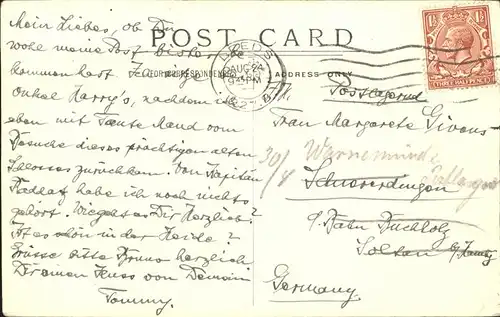 POST CARD
FOR CORRESPONDENCE
ADDRESS ONLY
LEEDS
AUG 24
9 PM
1½
Mein Liebes, ob Du
wohl meine Post bisher be
kommen hast
Onkel Harry's, nachdem ich
eben mit Tante Maud vom
Besuche dieses prächtigen alten
Schlosses zurückkam. Von Kapitän
habe ich noch nichts
gehört. Wie geht es Dir Herzlieb?
Ist es schön in der Heide?
Grüsse bitte Bruno herzlich
Dir einen Kuss von Deinem
Tommy.
Postlagernd
Frau Margarete Givens
30/8 Warnemünde
Schneverdingen
Postlagernd
p/ Bahn Buchholz
Soltau
Germany.